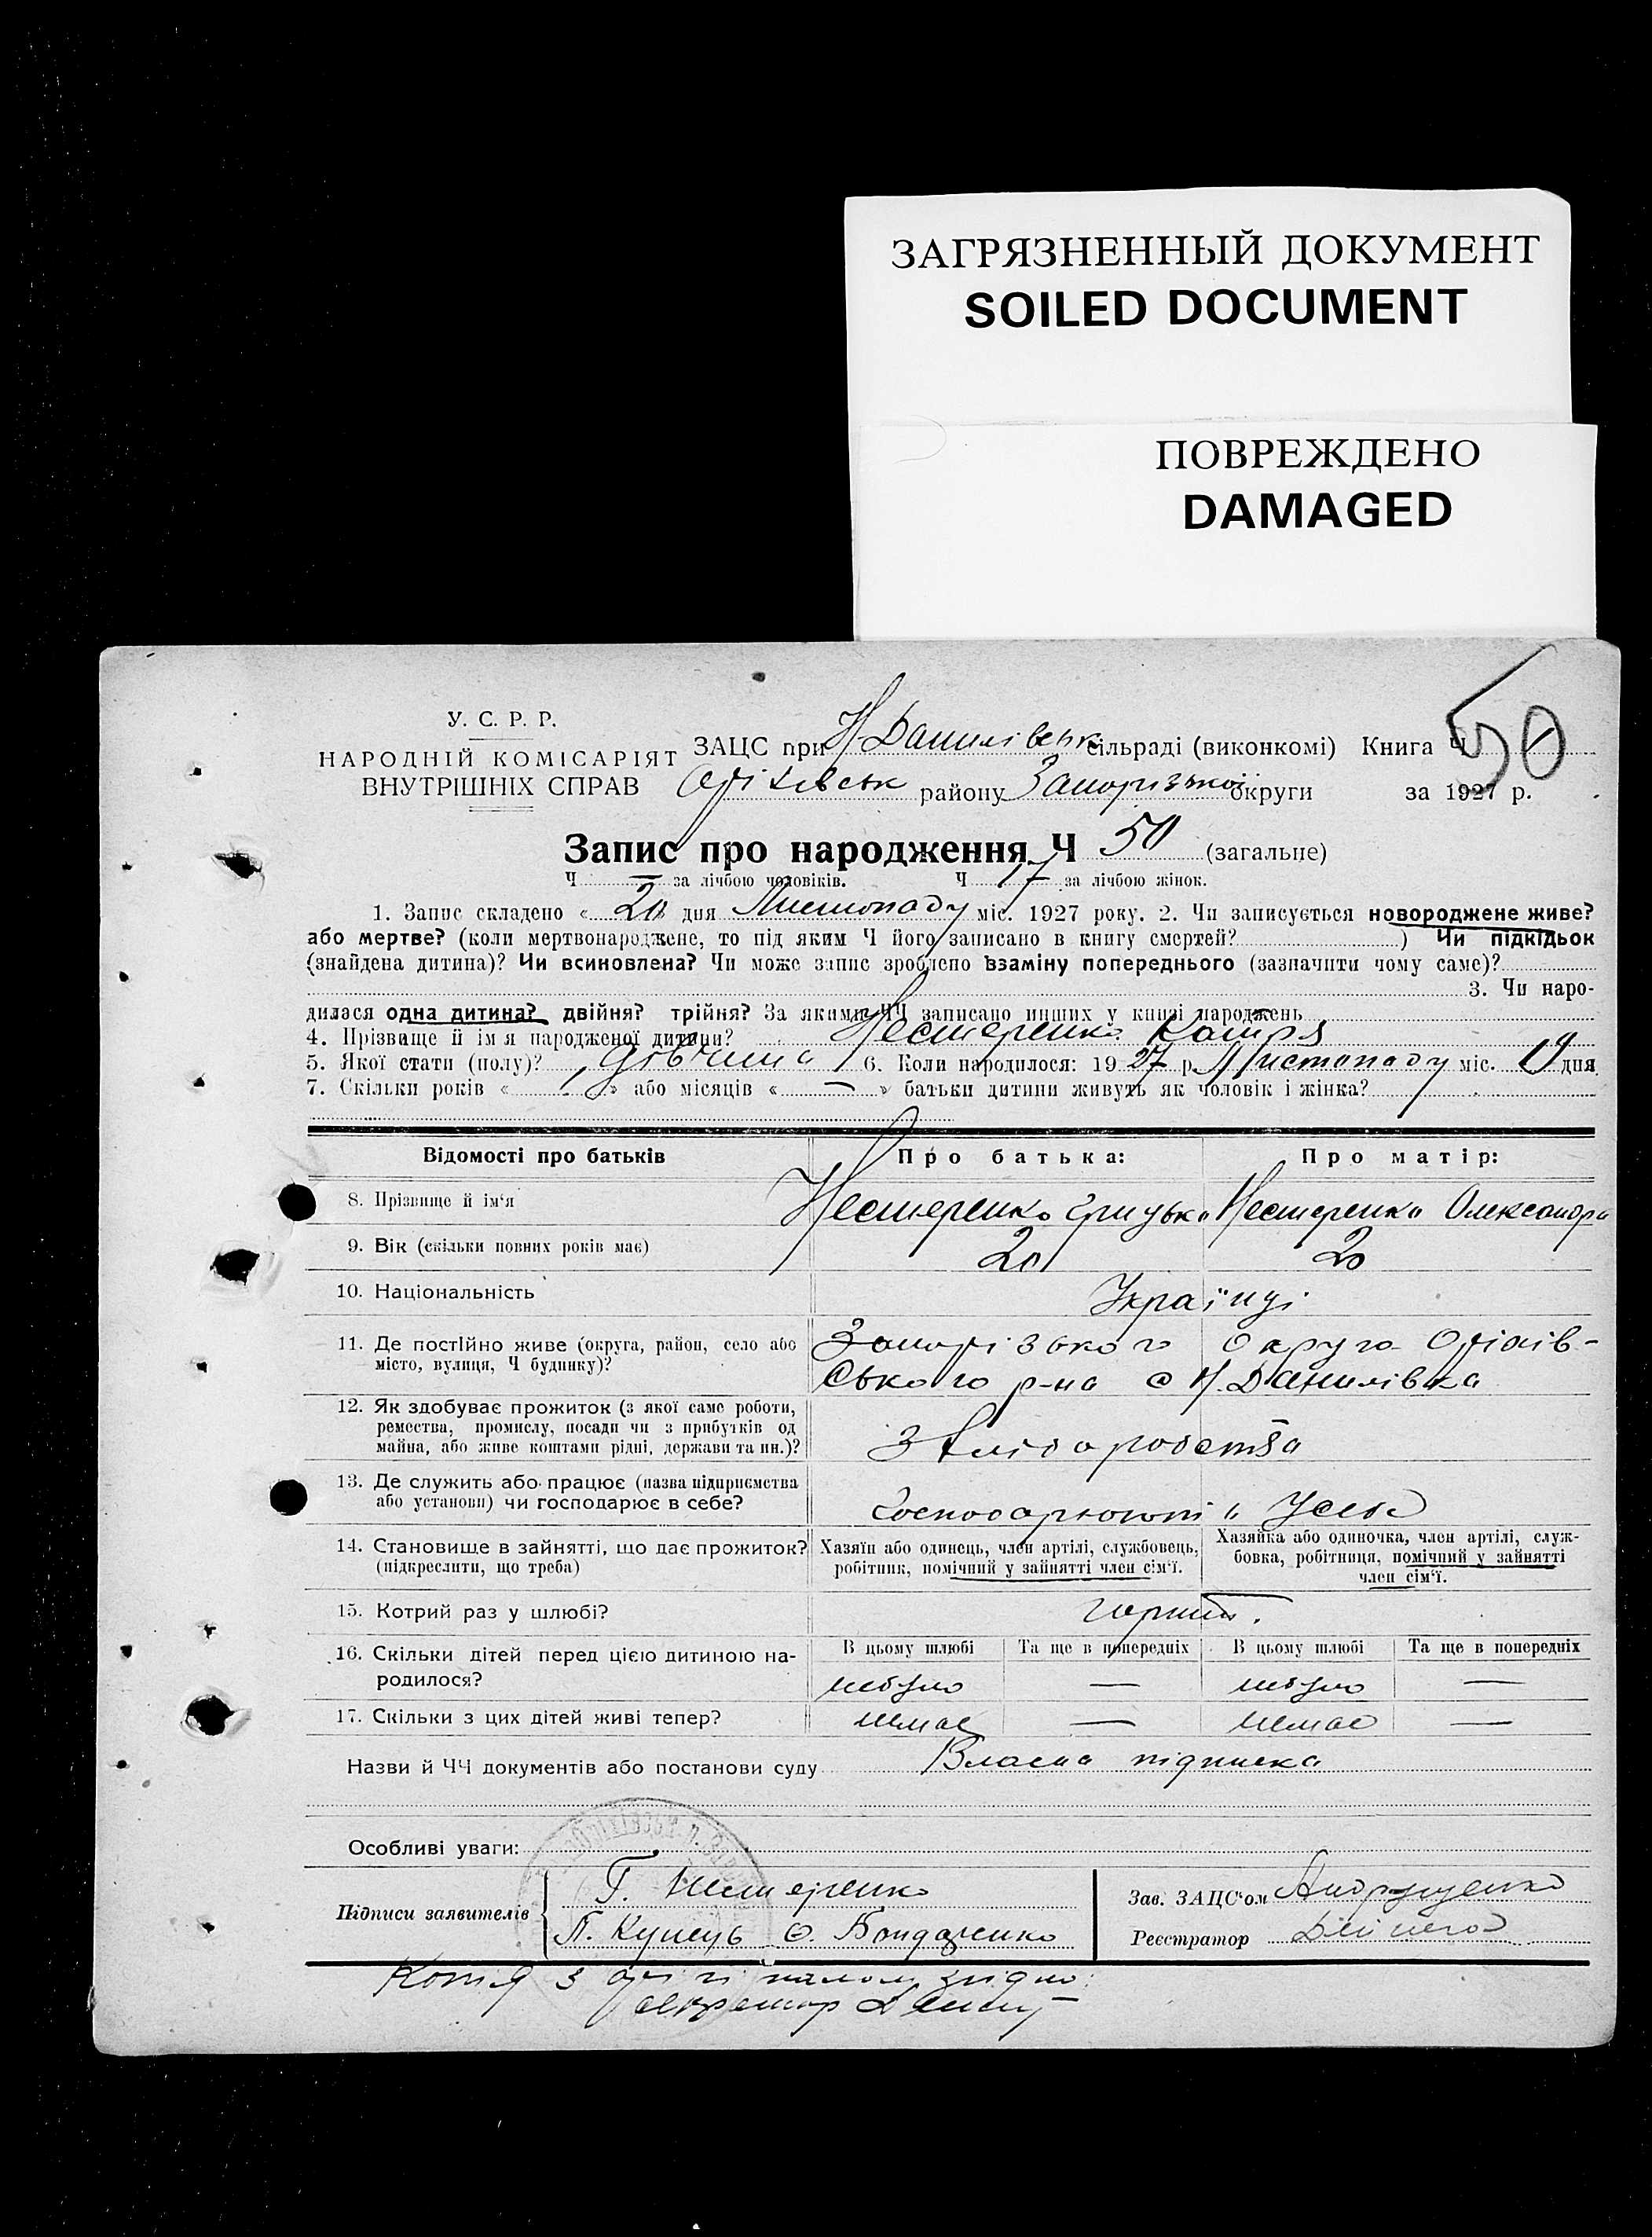 ЗАГРЯЗНЕННЫЙ ДОКУМЕНТ
SOILED DOCUMENT
ПОВРЕЖДЕНО
DAMAGED
У. С. Р. Р.
НАРОДНІЙ КОМІСАРІЯТ
ВНУТРІШНІХ СПРАВ
ЗАЦС при Н Данилівськ сільраді (виконкомі) Книга Ч 50
Оріхівськ району Запорізької округи за 1927 р.
Запис про народження Ч 50 (загальне)
Ч — за лічбою чоловіків. Ч 17 за лічбою жінок.
1. Запис складено « 20 » дня Листопаду міс. 1927 року. 2. Чи записується новороджене живе?
або мертве? (коли мертвонароджене, то під яким Ч його записано в книгу смертей? ) Чи підкідьок
(знайдена дитина)? Чи всиновлена? Чи може запис зроблено взаміну попереднього (зазначити чому саме)?
3. Чи наро-
дилася одна дитина? двійня? трійня? За якими ЧЧ записано инших у книзі народжень
4. Прізвище й ім'я народженої дитини? Нестеренко Катря
5. Якої стати (полу)? дівчина 6. Коли народилося: 1927 р. Листопаду міс. 19 дня
7. Скільки років « 1 » або місяців « — » батьки дитини живуть як чоловік і жінка?
Відомості про батьків Про батька: Про матір:
8. Прізвище й ім'я Нестеренко Грицько Нестеренко Олександра
9. Вік (скільки повних років має) 20 20
10. Національність Українці
11. Де постійно живе (округа, район, село або
місто, вулиця, Ч будинку)?
Запорізького округа Оріхів-
ського р-на с Н. Данилівка
12. Як здобуває прожиток (з якої саме роботи,
ремества, промислу, посади чи з прибутків од
майна, або живе коштами рідні, держави та ин.)?
З хліборобства
13. Де служить або працює (назва підприємства
або установи) чи господарює в себе?
Господарюють у себе
14. Становище в зайнятті, що дає прожиток?
(підкреслити, що треба)
Хазяїн або одинець, член артілі, службовець,
робітник, помічний у зайнятті член сім'ї.
Хазяйка або одиночка, член артілі, служ-
бовка, робітниця, помічний у зайнятті
член сім'ї.
15. Котрий раз у шлюбі?
16. Скільки дітей перед цією дитиною на-
родилося?
В цьому шлюбі Та ще в попередніх В цьому шлюбі Та ще в попередніх
небуло — небуло —
17. Скільки з цих дітей живі тепер? немає — немає —
Назви й ЧЧ документів або постанови суду Власна підписка
Особливі уваги:
Підписи заявителів
Г. Нестеренко
П. Купець О. Бондаренко
Зав. ЗАЦС'ом Андрущенко
Реєстратор
Копія з оригіналом згідно:
Секретар